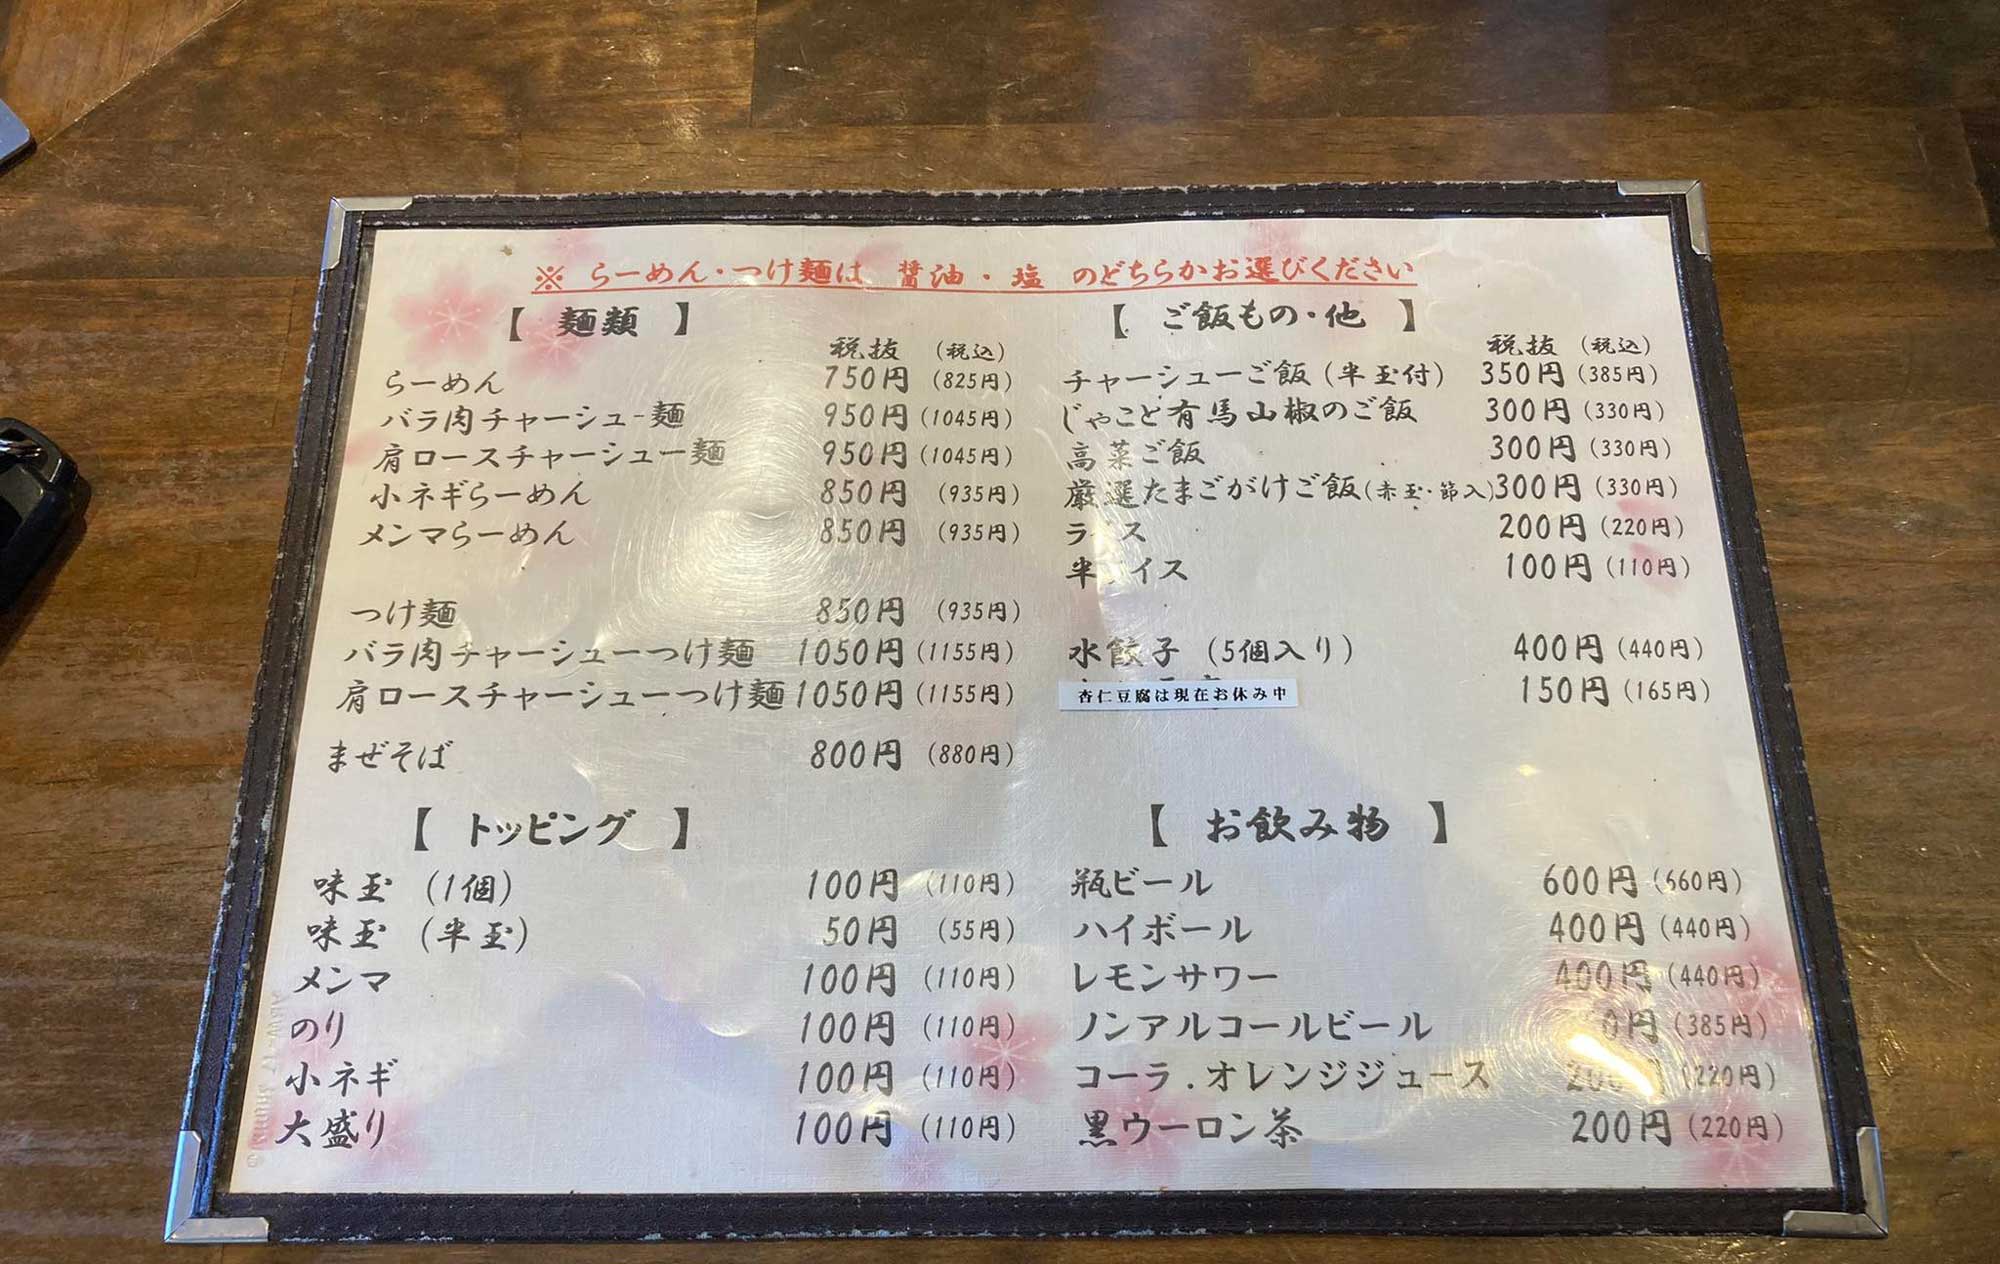 ※ らーめん・つけ麺は 醤油・塩 のどちらかお選びください
【 麺類 】
税抜 (税込)
らーめん 750円 (825円)
バラ肉チャーシュー麺 950円 (1045円)
肩ロースチャーシュー麺 950円 (1045円)
小ネギらーめん 850円 (935円)
メンマらーめん 850円 (935円)
つけ麺 850円 (935円)
バラ肉チャーシューつけ麺 1050円 (1155円)
肩ロースチャーシューつけ麺 1050円 (1155円)
まぜそば 800円 (880円)
【 トッピング 】
味玉 (1個) 100円 (110円)
味玉 (半玉) 50円 (55円)
メンマ 100円 (110円)
のり 100円 (110円)
小ネギ 100円 (110円)
大盛り 100円 (110円)
【 ご飯もの・他 】
税抜 (税込)
チャーシューご飯 (半玉付) 350円 (385円)
じゃこと有馬山椒のご飯 300円 (330円)
高菜ご飯 300円 (330円)
厳選たまごがけご飯 (赤玉・節入) 300円 (330円)
ライス 200円 (220円)
半ライス 100円 (110円)
水餃子 (5個入り) 400円 (440円)
杏仁豆腐は現在お休み中 150円 (165円)
【 お飲み物 】
瓶ビール 600円 (660円)
ハイボール 400円 (440円)
レモンサワー 400円 (440円)
ノンアルコールビール 円 (385円)
コーラ.オレンジジュース 200円 (220円)
黒ウーロン茶 200円 (220円)